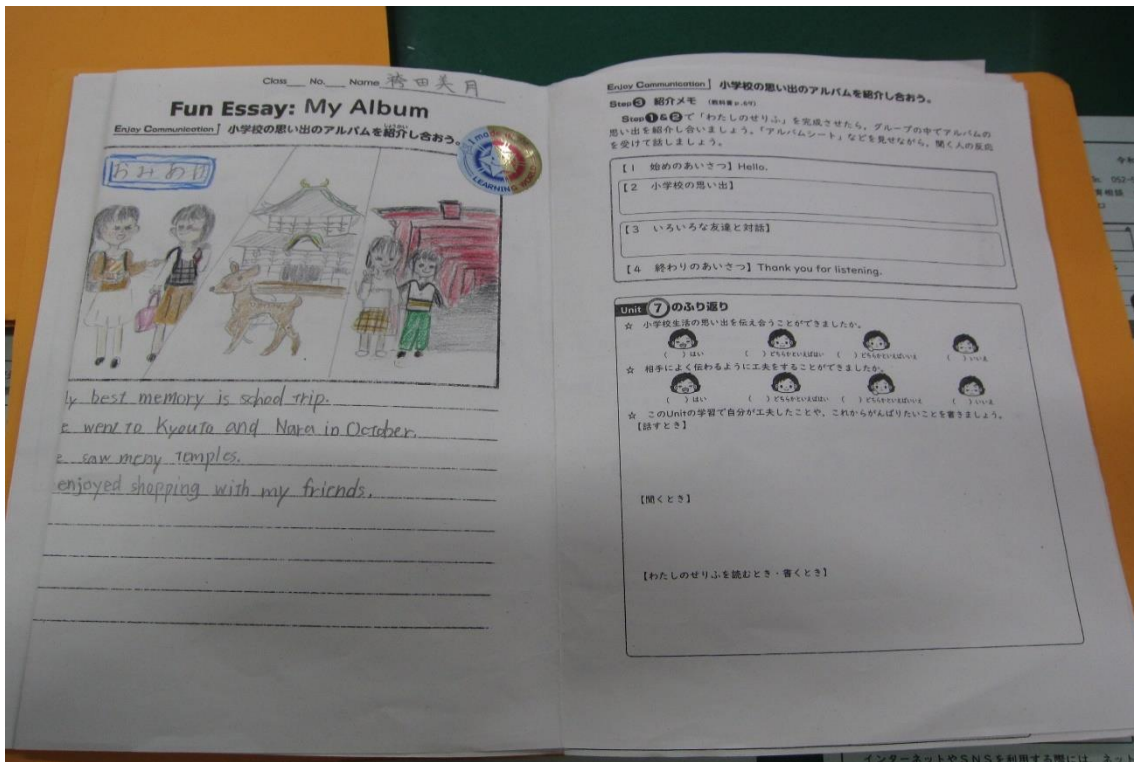 Class___ No.___ Name 袴田美月
Fun Essay: My Album
Enjoy Communication 小学校の思い出のアルバムを紹介し合おう。
しょうかい
I made the
LEARNING WORLD
おみあげ
ly best memory is school trip.
e went to Kyouto and Nara in October.
e saw meny temples.
enjoyed shopping with my friends.
Enjoy Communication 小学校の思い出のアルバムを紹介し合おう。
Step3 紹介メモ (教科書 p.69)
Step1&2で「わたしのせりふ」を完成させたら、グループの中でアルバムの
思い出を紹介し合いましょう。「アルバムシート」などを見せながら、聞く人の反応
を受けて話しましょう。
【1 始めのあいさつ】Hello.
【2 小学校の思い出】
【3 いろいろな友達と対話】
【4 終わりのあいさつ】Thank you for listening.
Unit 7 のふり返り
☆ 小学校生活の思い出を伝え合うことができましたか。
( )はい ( )どちらかといえばはい ( )どちらかといえばいいえ ( )いいえ
☆ 相手によく伝わるように工夫をすることができましたか。
( )はい ( )どちらかといえばはい ( )どちらかといえばいいえ ( )いいえ
☆ このUnitの学習で自分が工夫したことや、これからがんばりたいことを書きましょう。
【話すとき】
【聞くとき】
【わたしのせりふを読むとき・書くとき】
インターネットやSNSを利用する際には、ネット